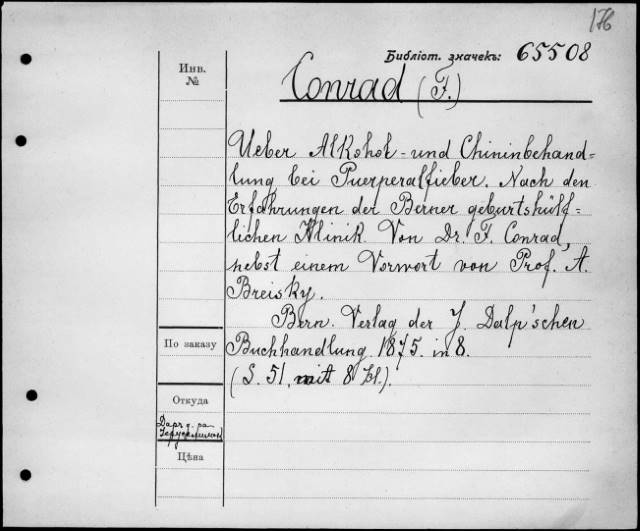 176
Библіот. значекъ: 65508
Инв.
№
Conrad (F.)
Ueber Alkohol- und Chininbehand=
lung bei Puerperalfieber. Nach den
Erfahrungen der Berner geburtshülf=
lichen Klinik. Von Dr. F. Conrad,
nebst einem Vorwort von Prof. A.
Breisky.
Bern. Verlag der J. Dalp'schen
По заказу
Buchhandlung 1875. in 8.
(S. 51, mit 8 Tbl.).
Откуда
Даръ
Цѣна